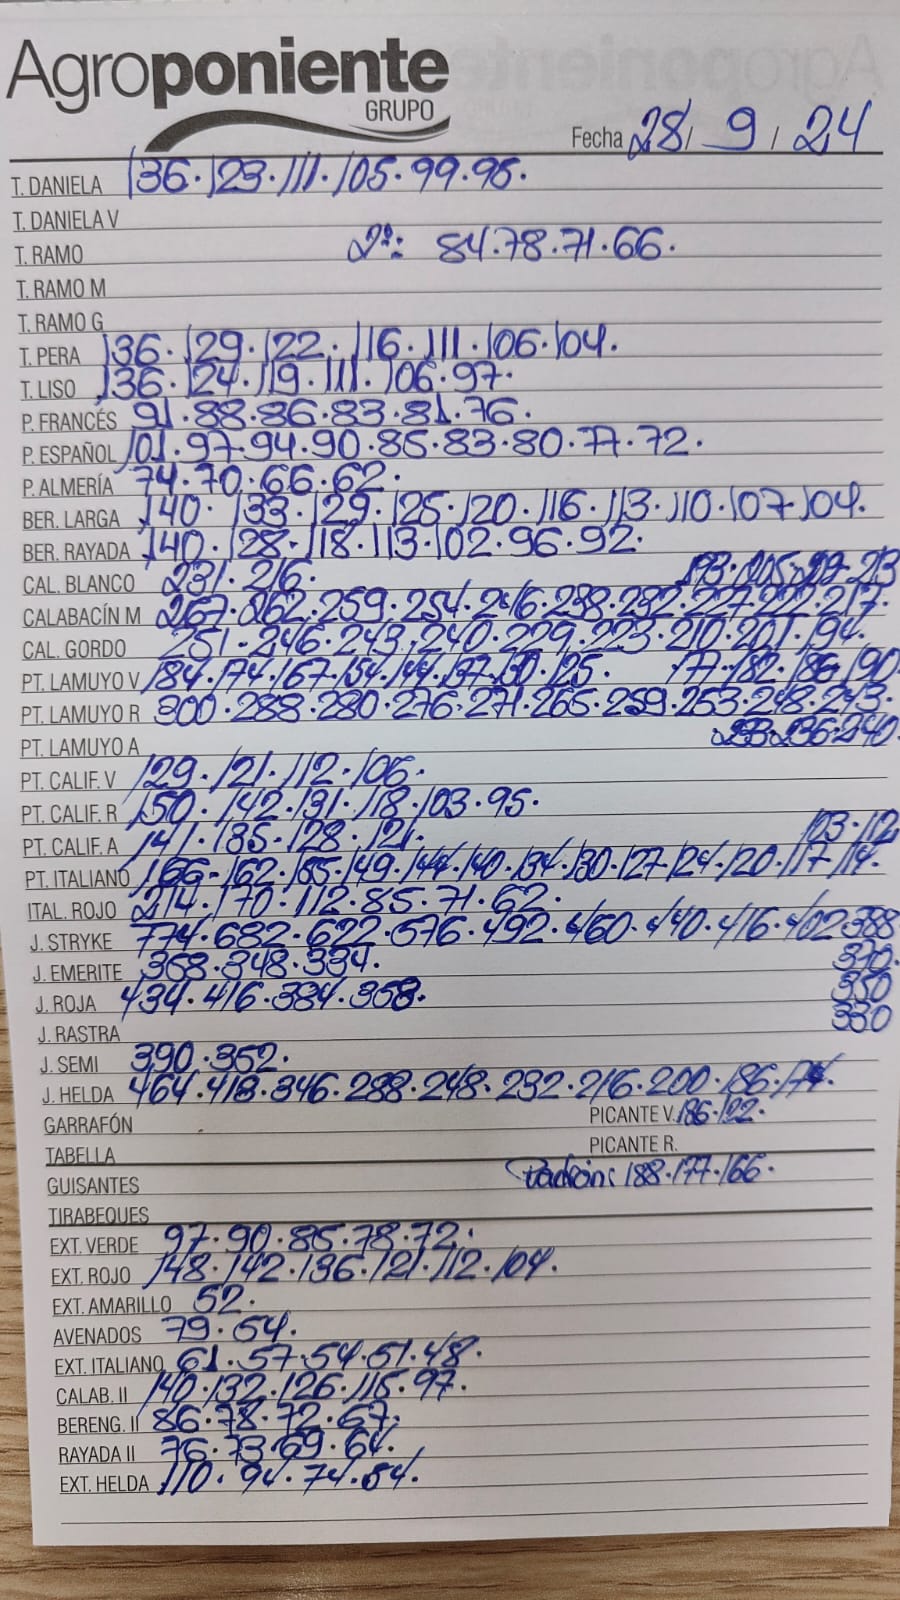 Agroponiente
GRUPO
Fecha 28/ 9 / 24
T. DANIELA 136·123·111·105·99·95·
T. DANIELA V
T. RAMO 2ª: 84·78·71·66·
T. RAMO M
T. RAMO G
T. PERA 136·129·122·116·111·106·104·
T. LISO 136·124·119·111·106·97·
P. FRANCÉS 91·88·86·83·81·76·
P. ESPAÑOL 101·97·94·90·85·83·80·77·72·
P. ALMERÍA 74·70·66·62·
BER. LARGA 140·133·129·125·120·116·113·110·107·104·
BER. RAYADA 140·128·118·113·102·96·92·
CAL. BLANCO 231·216· 193·205· 213
CALABACÍN M 267·262·259·254·246·238·232·227·222·217·
CAL. GORDO 251·246·243·240·229·223·210·201·194·
PT. LAMUYO V 184·174·167·154·144·137·130·125· 177·182·186·190
PT. LAMUYO R 300·288·280·276·271·265·259·253·248·243·
PT. LAMUYO A 236·240
PT. CALIF. V 129·121·112·106·
PT. CALIF. R 150·142·131·118·103·95·
PT. CALIF. A 141·185·128·121· 103·112
PT. ITALIANO 166·162·155·149·144·140·134·130·127·124·120·117·114·
ITAL. ROJO 214·170·112·85·71·62·
J. STRYKE 774·682·622·576·492·460·440·416·402·388
J. EMERITE 368·348·334· 370·
J. ROJA 434·416·384·358· 350
J. RASTRA 330
J. SEMI 390·352·
J. HELDA 464·418·346·288·248·232·216·200·186·174·
GARRAFÓN PICANTE V. 186·122·
TABELLA PICANTE R.
GUISANTES Padrón: 188·177·166·
TIRABEQUES
EXT. VERDE 97·90·85·78·72·
EXT. ROJO 148·142·136·121·112·104·
EXT. AMARILLO 52·
AVENADOS 79·54·
EXT. ITALIANO 61·57·54·51·48·
CALAB. II 140·132·126·115·97·
BERENG. II 86·78·72·67·
RAYADA II 76·73·69·64·
EXT. HELDA 110·94·74·54·